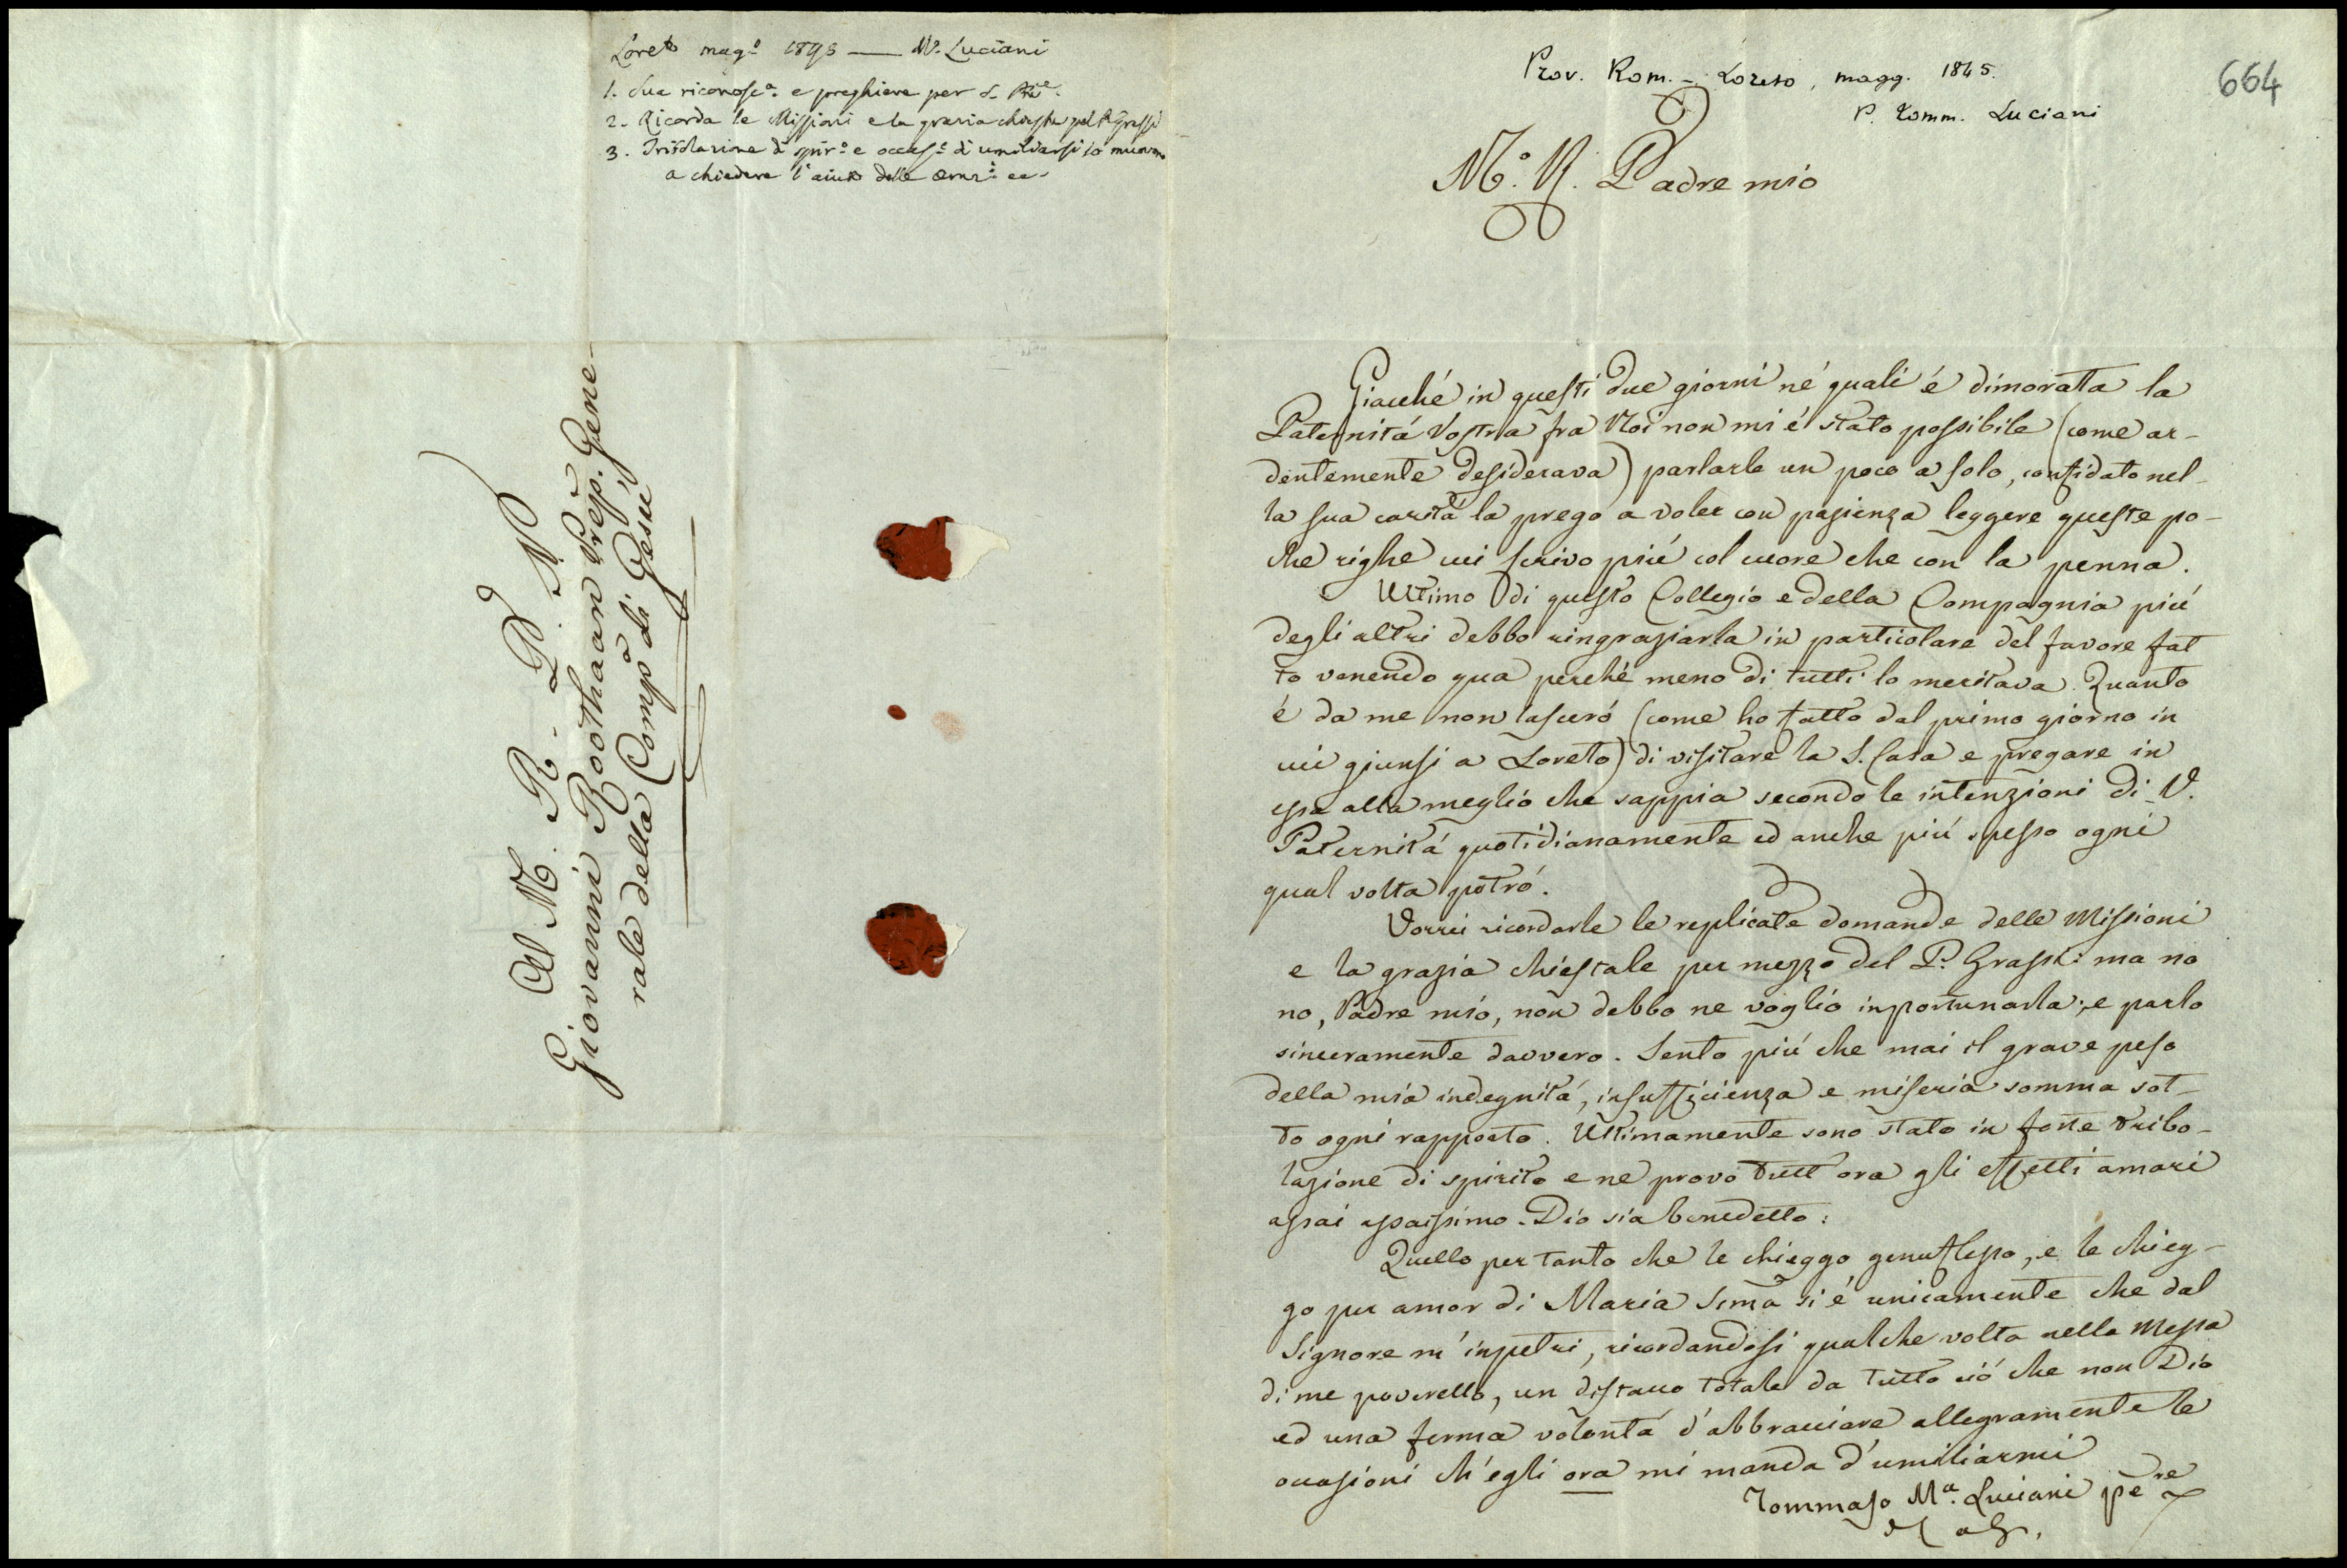 Loreto magº 1845 — Mº. Luciani
1. Sua riconoscª. e preghiere per S. Ptà.
2. Ricorda le Missioni e la grazia chiesta pel P. Grassi
3. Tribolazione di spirº. e occasº. di umiliarsi lo muovono
a chiedere l'aiuto delle orazi.
Al M. R. P. N.
Giovanni Roothaan Prep. Gene-
rale della Compª di Gesù
Prov. Rom. - Loreto, magg. 1845.
P. Tomm. Luciani
664
Mº. R. Padre mio
Giacché in questi due giorni né quali é dimorata la
Paternitá Vostra fra Noi non mi é stato possibile (come ar-
dentemente desiderava) parlarle un poco a solo, confidato nel-
la sua caritá la prego a voler con pazienza leggere queste po-
che righe cui scrivo piú col cuore che con la penna.
Ultimo di questo Collegio e della Compagnia piú
degli altri debbo ringraziarla in particolare del favore fat
to venendo qua perché meno di tutti lo meritava. Quanto
é da me non lasceró (come ho fatto dal primo giorno in
cui giunsi a Loreto) di visitare la S. Casa e pregare in
essa alla meglio che sappia secondo le intenzioni di V.
Paternitá quotidianamente ed anche piú spesso ogni
qual volta potró.
Vorrei ricordarle le replicate domande delle Missioni
e la grazia chiestale per mezzo del P. Grassi: ma no
no, Padre mio, non debbo ne voglio inportunarla; e parlo
sinceramente davvero. Sento piú che mai il grave peso
della mia indegnitá, insufficienza e miseria somma sot-
to ogni rapporto. Ultimamente sono stato in forte tribo-
lazione di spirito e ne provo tutt'ora gli effetti amari
assai assaissimo. Dio sia benedetto:
Quello per tanto che le chieggo genuflesso, e le chieg-
go per amor di Maria Sṁa si é unicamente che dal
Signore m'inpetri, ricordandosi qualche volta nella Messa
di me poverello, un distacco totale da tutto ció che non Dio
ed una ferma volontá d'abbracciare allegramente le
occasioni ch'egli ora mi manda d'umiliarmi
Tommaso Mª. Luciani